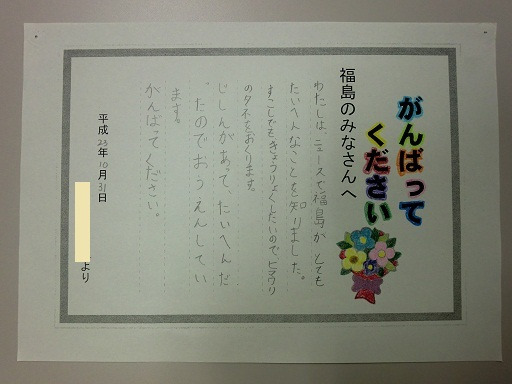 がんばって
ください
福島のみなさんへ
わたしは、ニュースで福島が、とても
たいへんなことを知りました。
すこしでもきょうりょくしたいのでヒマワリ
のタネをおくります。
じしんがあって、たいへんだ
ったのでおうえんしてい
ます。
がんばってください。
平成23年10月31日
より